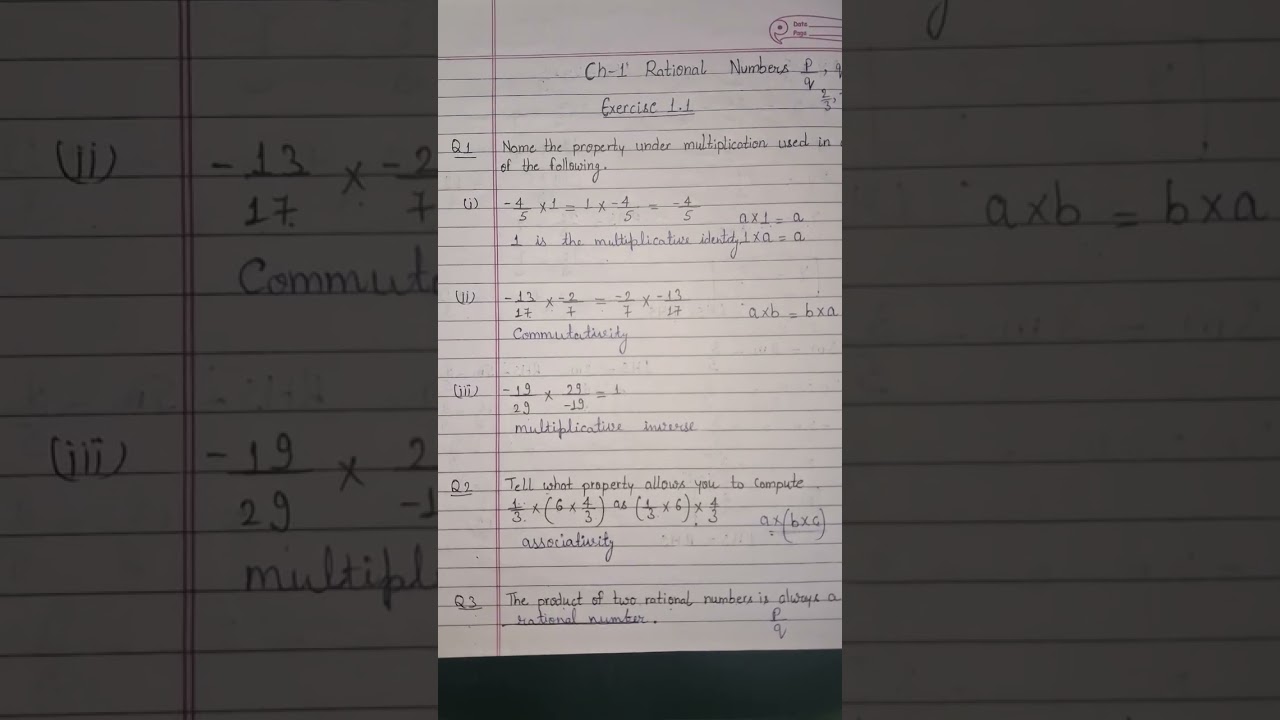 Date
Page
Ch-1 Rational Numbers p/q, q
2/3,
Exercise 1.1
Q1 Name the property under multiplication used in
of the following.
(i) -4/5 × 1 = 1 × -4/5 = -4/5 a×1 = a
1 is the multiplicative identity 1×a = a
(ii) -13/17 × -2/7 = -2/7 × -13/17 a×b = b×a
Commutativity
(iii) -19/29 × 29/-19 = 1
multiplicative inverse
Q2 Tell what property allows you to compute
1/3 × (6 × 4/3) as (1/3 × 6) × 4/3 a×(b×c)
=
associativity
Q3 The product of two rational numbers is always a
rational number. p/q
(ii) -13/17 × -2/7
Commut
(iii) -19/29 × 2/-1
multipl
a×b = b×a